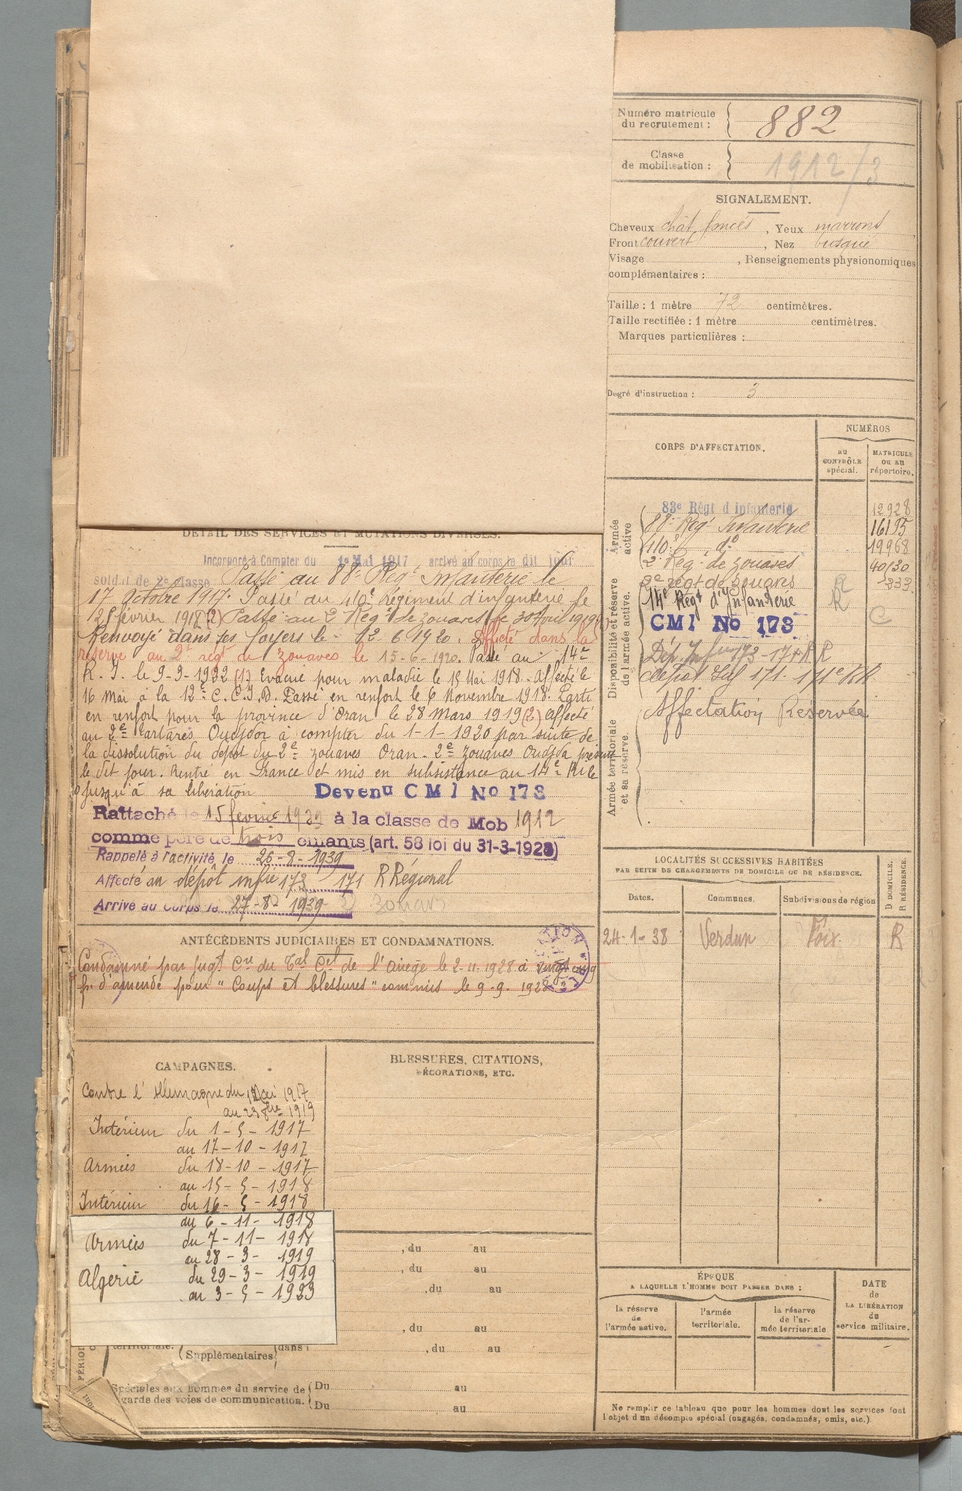 Numéro matricule
du recrutement : 882
Classe
de mobilisation : 1912/3
SIGNALEMENT.
Cheveux chât. foncés, Yeux marrons
Front couvert, Nez busqué
Visage , Renseignements physionomiques
complémentaires :
Taille : 1 mètre 72 centimètres.
Taille rectifiée : 1 mètre centimètres.
Marques particulières :
Degré d'instruction : 3
CORPS D'AFFECTATION.
NUMÉROS
AU CONTRÔLE spécial.
MATRICULE OU AU répertoire.
Armée active
83e Régt d'infanterie 12928
88e Régt Infanterie 16195
110e do 19968
2e Rég. de zouaves 40130
Disponibilité et réserve de l'armée active.
2e régt de zouaves R 333
14e Régt d'Infanterie R
CMI No 173 C
Dép. Infie 173-171 RR
dépôt Inf 171. 171e RR
Armée territoriale et sa réserve.
Affectation Réservée
DÉTAIL DES SERVICES ET MUTATIONS DIVERSES.
Incorporé à Compter du 1er Mai 1917 arrivé au corps le dit jour
soldat de 2e classe Passé au 88e Régt Infanterie le
17 Octobre 1917. Passé au 110e régiment d'infanterie le
28 février 1918 (2) Passé au 2e Rég de zouaves le 30 Avril 1919
Renvoyé dans ses foyers le 12 6 1920. Affecté dans la
réserve au 2e régt de zouaves le 15-6-1920. Passé au 14e
R. I. le 9-3-1922 (1) Evacué pour maladie le 15 Mai 1918. Affecté le
16 Mai à la 12e C.C.I.D. Passé en renfort le 6 Novembre 1918. Parti
en renfort pour la province d'Oran le 28 Mars 1919 (2) affecté
au 2e Tartares Oudjda à compter du 1-1-1920 par suite de
la dissolution du dépôt du 2e zouaves Oran. 2e zouaves Oudjda
le dit jour. Rentré en France et mis en subsistance au 14e RI le
jusqu'à sa libération Devenu CMI No 173
Rattaché le 15 fevrier 1939 à la classe de Mob 1912
comme père de trois enfants (art. 58 loi du 31-3-1928)
Rappelé à l'activité le 26-8-1939
Affecté au dépôt infie 173 171 R Régional
Arrivé au Corps le 27-8-1939
ANTÉCÉDENTS JUDICIAIRES ET CONDAMNATIONS.
Condamné par jugt Cre du Tal Cel de l'Ariège le 2.11.1928 à vingt cinq
fr d'amende pour "Coups et blessures" commis le 9-9-1928
CAMPAGNES.
Contre l'Allemagne du 1 Mai 1917
au 23 8bre 1919
Intérieur du 1-5-1917
au 17-10-1917
Armées du 18-10-1917
au 15-5-1918
Intérieur du 16-5-1918
au 6-11-1918
Armées du 7-11-1918
au 28-3-1919
Algérie du 29-3-1919
au 3-5-1923
BLESSURES, CITATIONS,
DÉCORATIONS, ETC.
, du au
, du au
, du au
, du au
territoriale. (Supplémentaires) dans : , du au
Spéciales aux hommes du service de { Du au
garde des voies de communication. { Du au
LOCALITÉS SUCCESSIVES HABITÉES
PAR SUITE DE CHANGEMENTS DE DOMICILE OU DE RÉSIDENCE.
D DOMICILE.
R RÉSIDENCE.
Dates. Communes. Subdivisions de région
24-1-38 Verdun Foix R
ÉPOQUE
A LAQUELLE L'HOMME DOIT PASSER DANS :
la réserve de l'armée active.
l'armée territoriale.
la réserve de l'armée territoriale
DATE de LA LIBÉRATION du service militaire.
Ne remplir ce tableau que pour les hommes dont les services font
l'objet d'un décompte spécial (engagés, condamnés, omis, etc.)